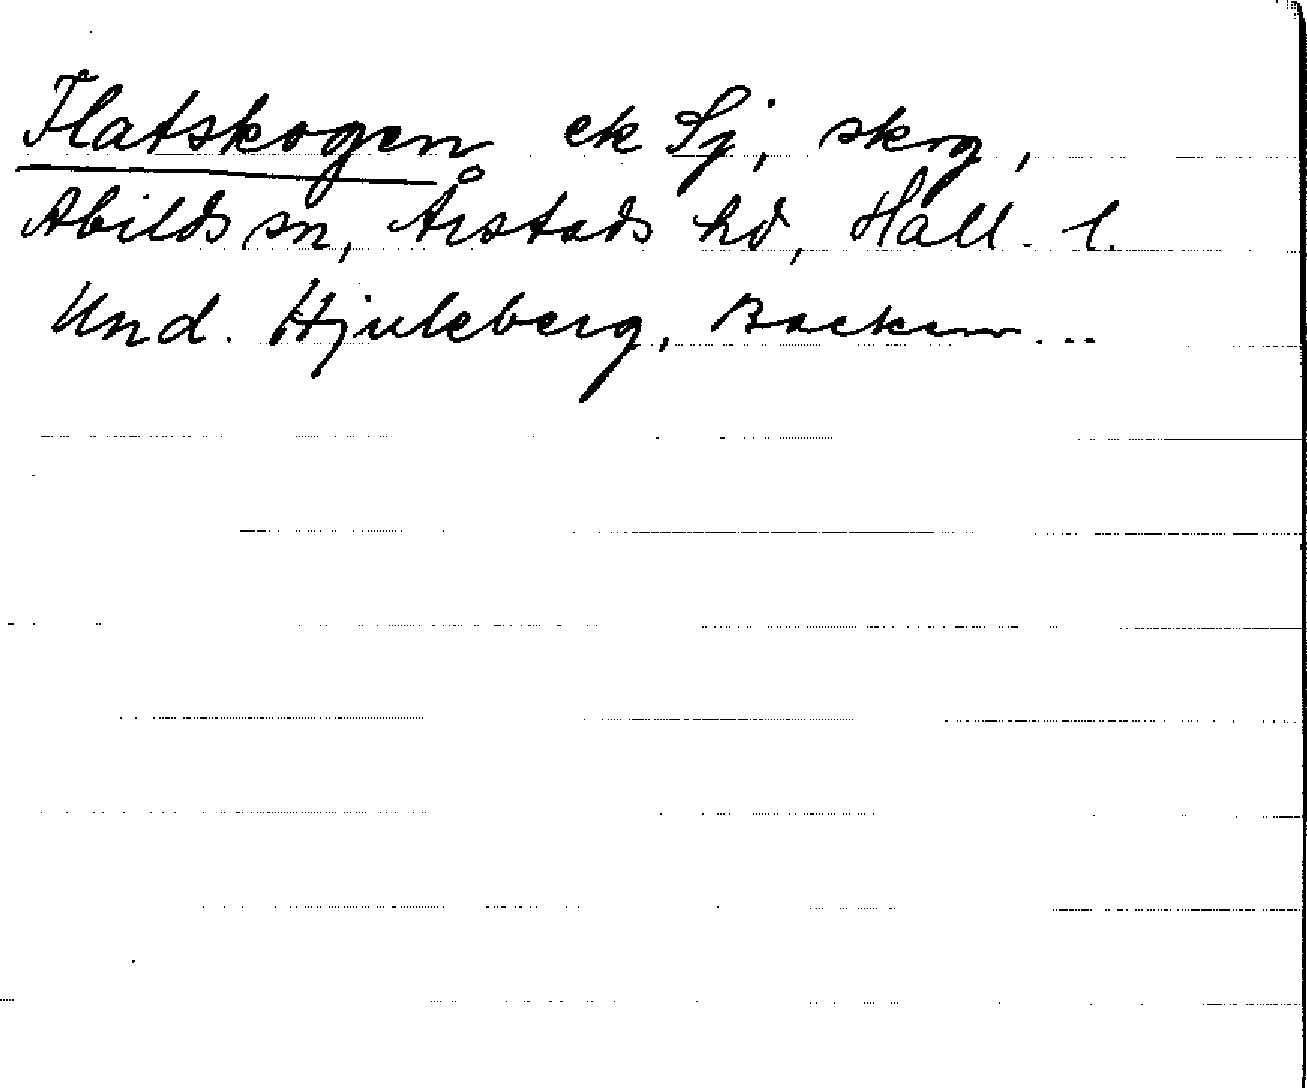 Flatskogen ek Sj, skog,
Abilds sn, Årstads hd, Hall. l.
Und. Hjuleberg, Backen...